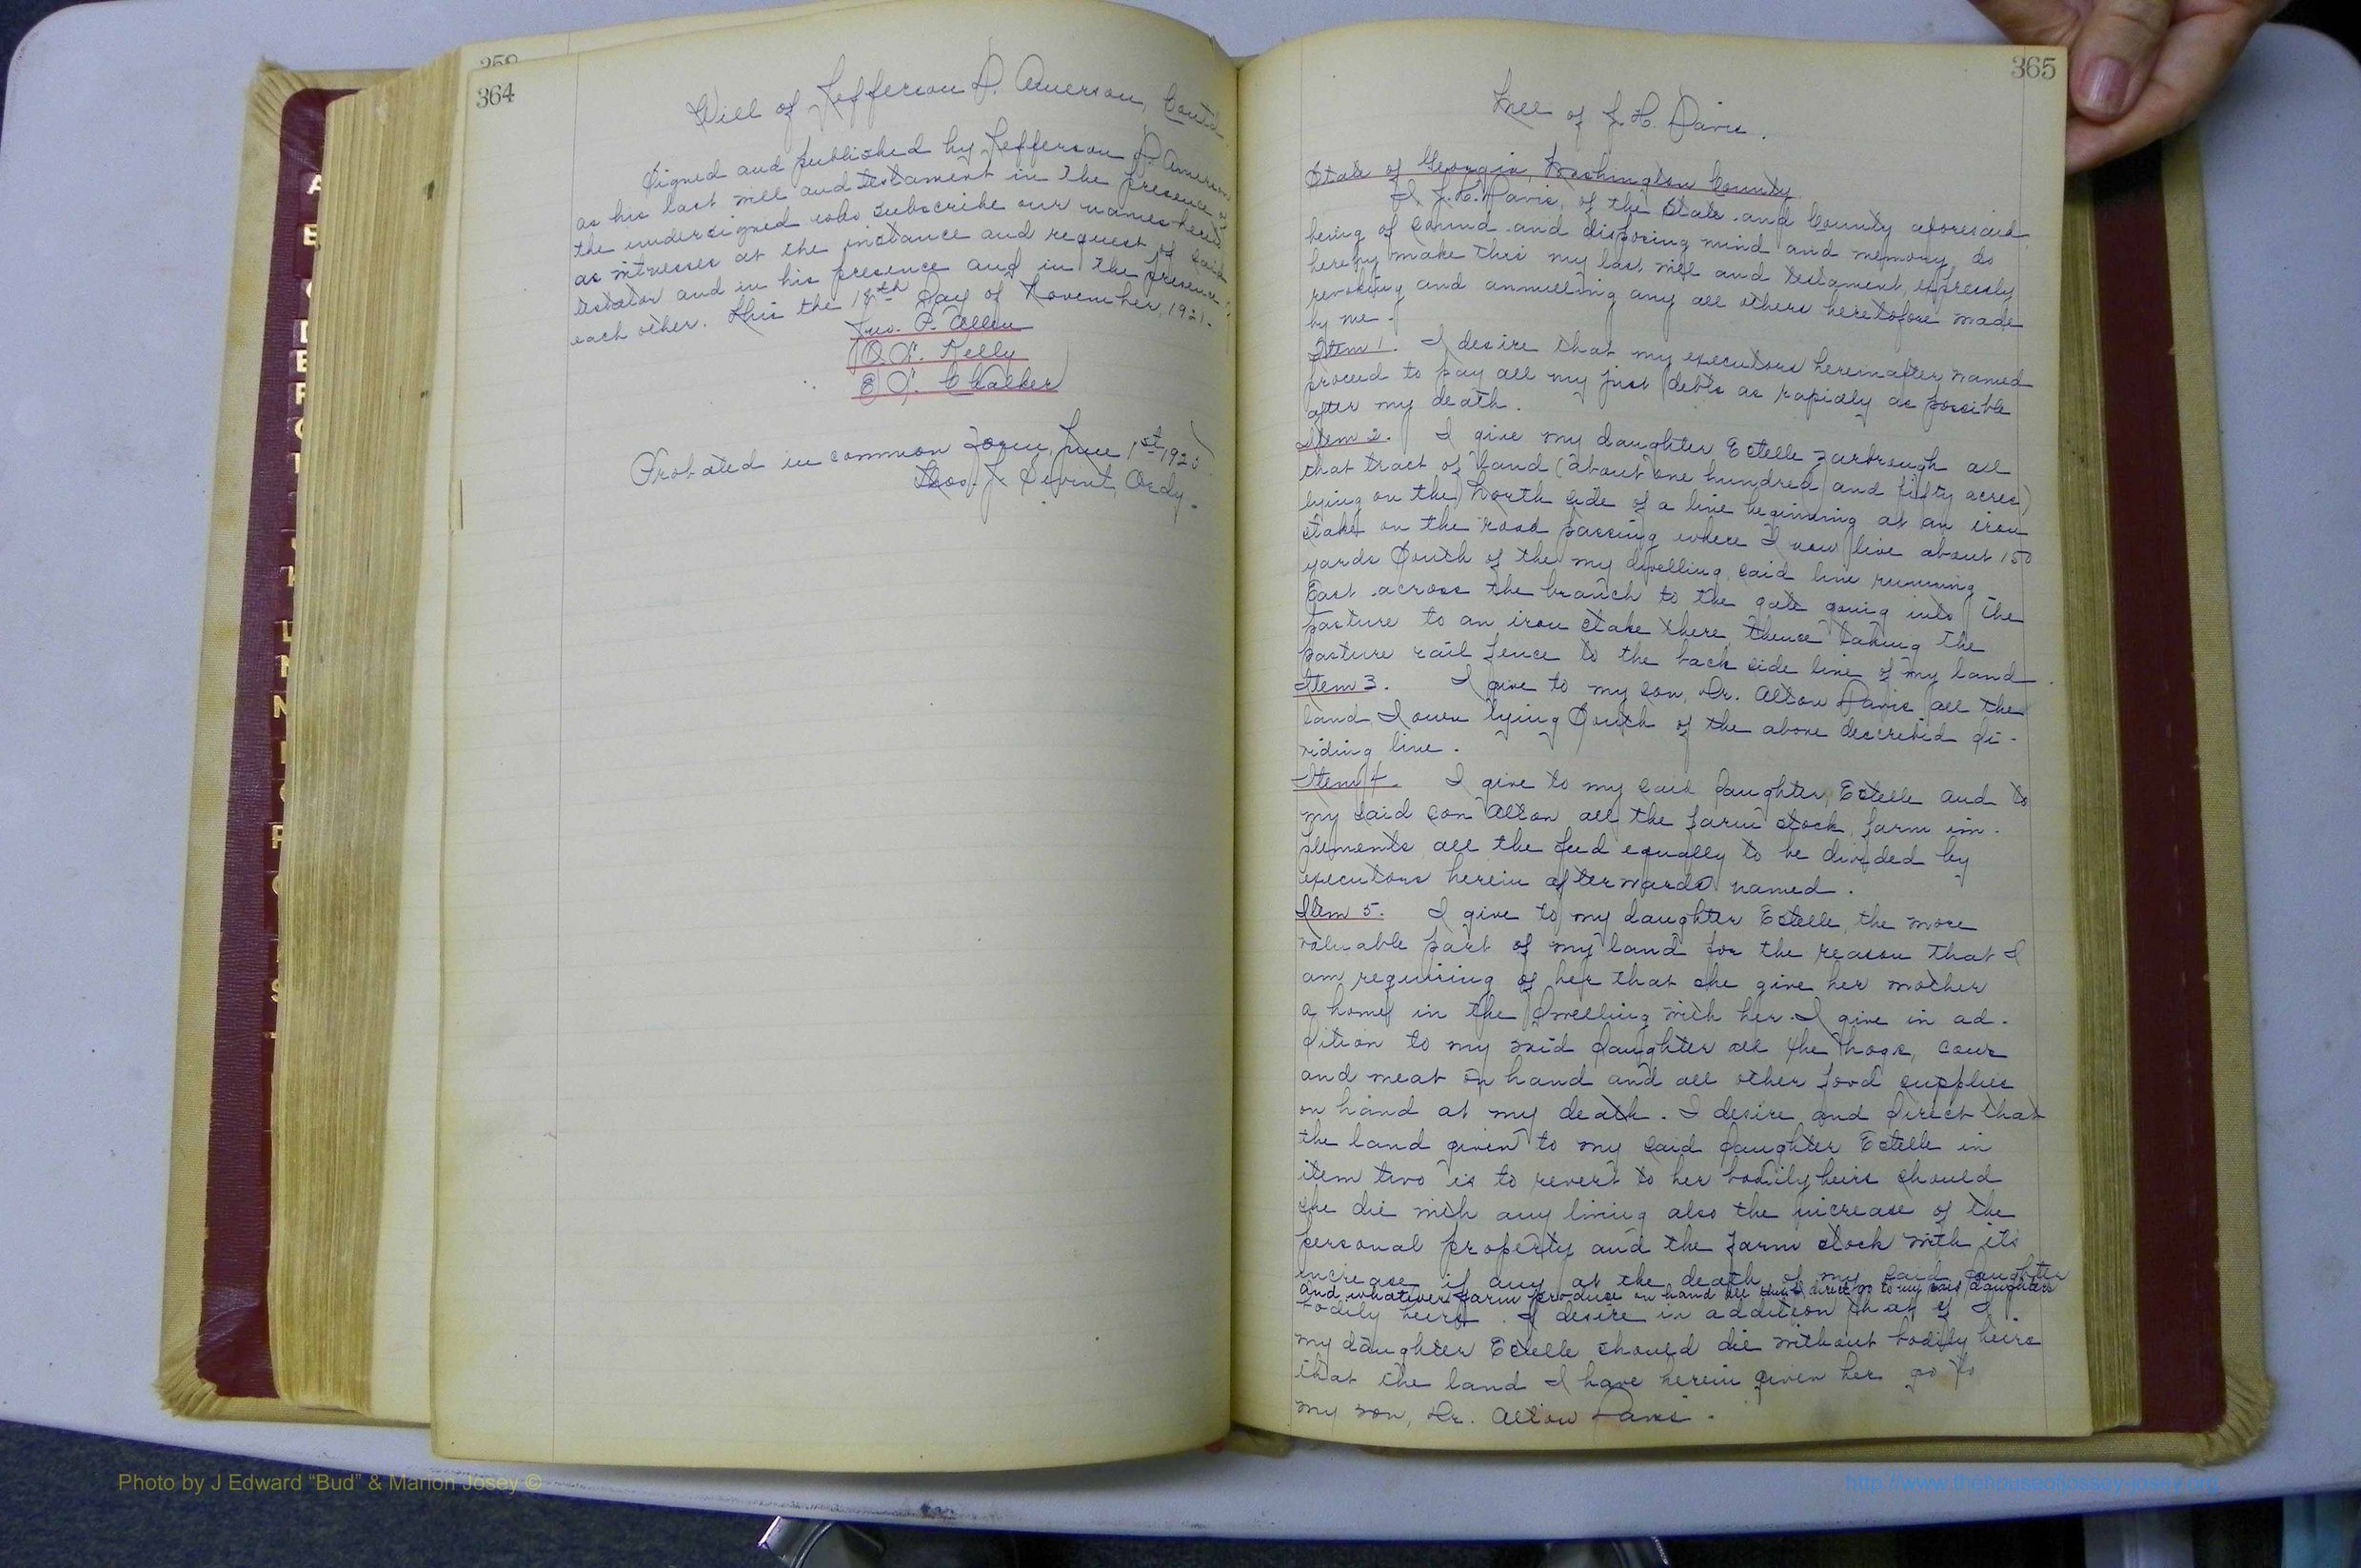 358
364
Will of Jefferson D. Amerson, Contd
Signed and published by Jefferson D. Amerson
as his last will and testament in the presence of
the undersigned who subscribe our names hereto
as witnesses at the instance and request of said
testator and in his presence and in the presence of
each other. This the 18th Day of November, 1921.
Jno. P. Allen
O. L. Kelly
E. L. Chalker
Probated in common form, June 1st 192
Thos. J. Swint, Ordy.
365
Will of J. H. Davis.
State of Georgia, Washington County.
I, J. H. Davis, of the State and County aforesaid,
being of sound and disposing mind and memory do
hereby make this my last will and testament, expressly
revoking and annulling any all others heretofore made
by me.
Item 1. I desire that my executors hereinafter named
proceed to pay all my just debts as rapidly as possible
after my death.
Item 2. I give my daughter Estelle Zarbrough all
that tract of land (about one hundred and fifty acres)
lying on the North side of a line beginning at an iron
stake on the road passing where I now live about 150
yards South of the my dwelling, said line running
East across the branch to the gate going into the
pasture to an iron stake there thence taking the
pasture rail fence to the back side line of my land.
Item 3. I give to my son, Dr. Alton Davis all the
land I own lying South of the above described di-
viding line.
Item 4. I give to my said daughter, Estelle and to
my said son Alton all the farm stock, farm im-
plements all the feed equally to be divided by
executors herein afterwards named.
Item 5. I give to my daughter Estelle, the more
valuable part of my land for the reason that I
am requiring of her that she give her mother
a home in the dwelling with her. I give in ad-
dition to my said daughter all the hogs, cows
and meat on hand and all other food supplies
on hand at my death. I desire and direct that
the land given to my said daughter Estelle in
item two is to revert to her bodily heirs should
she die with any living also the increase of the
personal property and the farm stock with its
increase if any at the death of my said daughter
and whatever farm produce on hand all this I direct go to my said daughters
bodily heirs. I desire in addition that if I
my daughter Estelle should die without bodily heirs
that the land I have herein given her go to
my son, Dr. Alton Davis.
Photo by J Edward “Bud” & Marion Josey ©
http://www.thehouseofjossey-josey.org